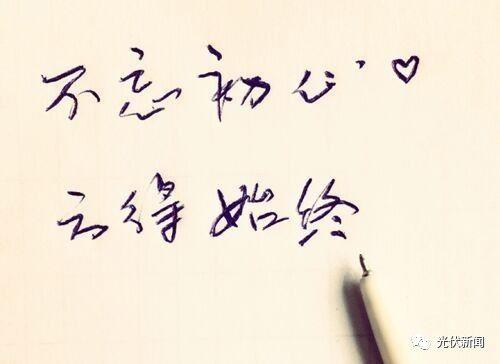 不忘初心
方得始终
光伏新闻